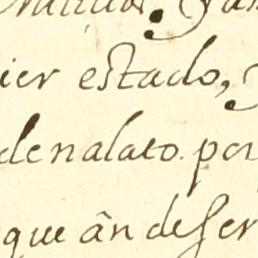 ier estado, y
denalato. por
que ân de ser